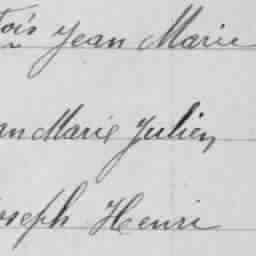 çois Jean Marie
an Marie Julien
oseph Henri